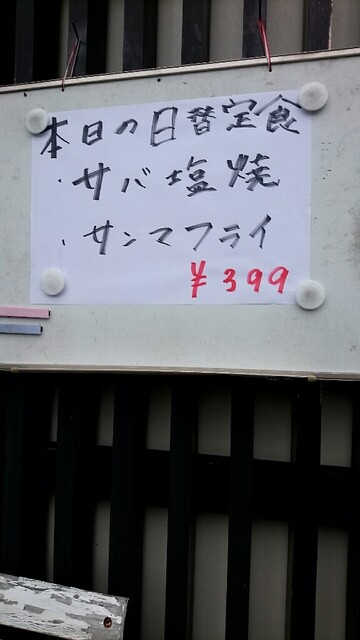 本日の日替定食
・サバ塩焼
・サンマフライ
¥399